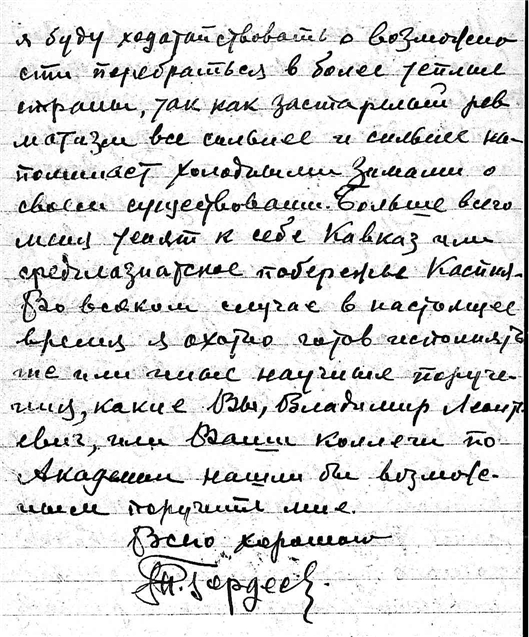 я буду ходатайствовать о возможно
сти перебраться в более теплые
страны, так как застарелый рев
матизм все сильнее и сильнее на-
поминает холодными зимами о
своем существовании. Больше всего
меня тянет к себе Кавказ или
среднеазиатское побережье Каспия.
Во всяком случае в настоящее
время я охотно готов исполнять
те или иные научные поруче-
ния, какие Вы, Владимир Леонт
евич, или Ваши коллеги по
Академии нашли бы возмож-
ным поручить мне.
Всего хорошего